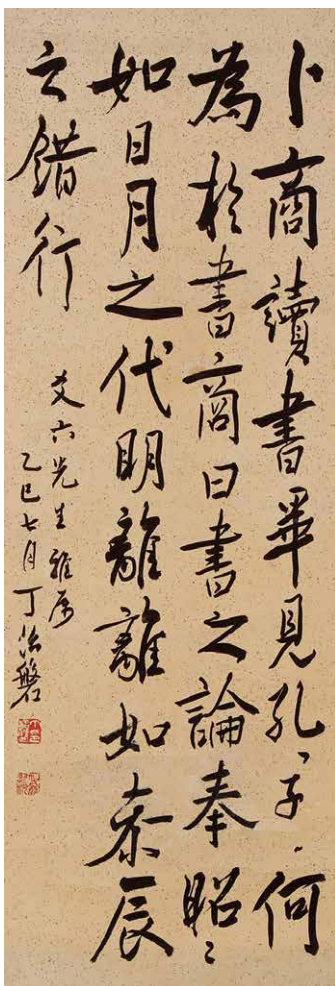 卜商讀書畢見孔〻子〻何
為於書商曰書之論奉昭〻
如日月之代明離離如叅辰
之錯行
爻六先生雅屬
乙巳七月丁治磐